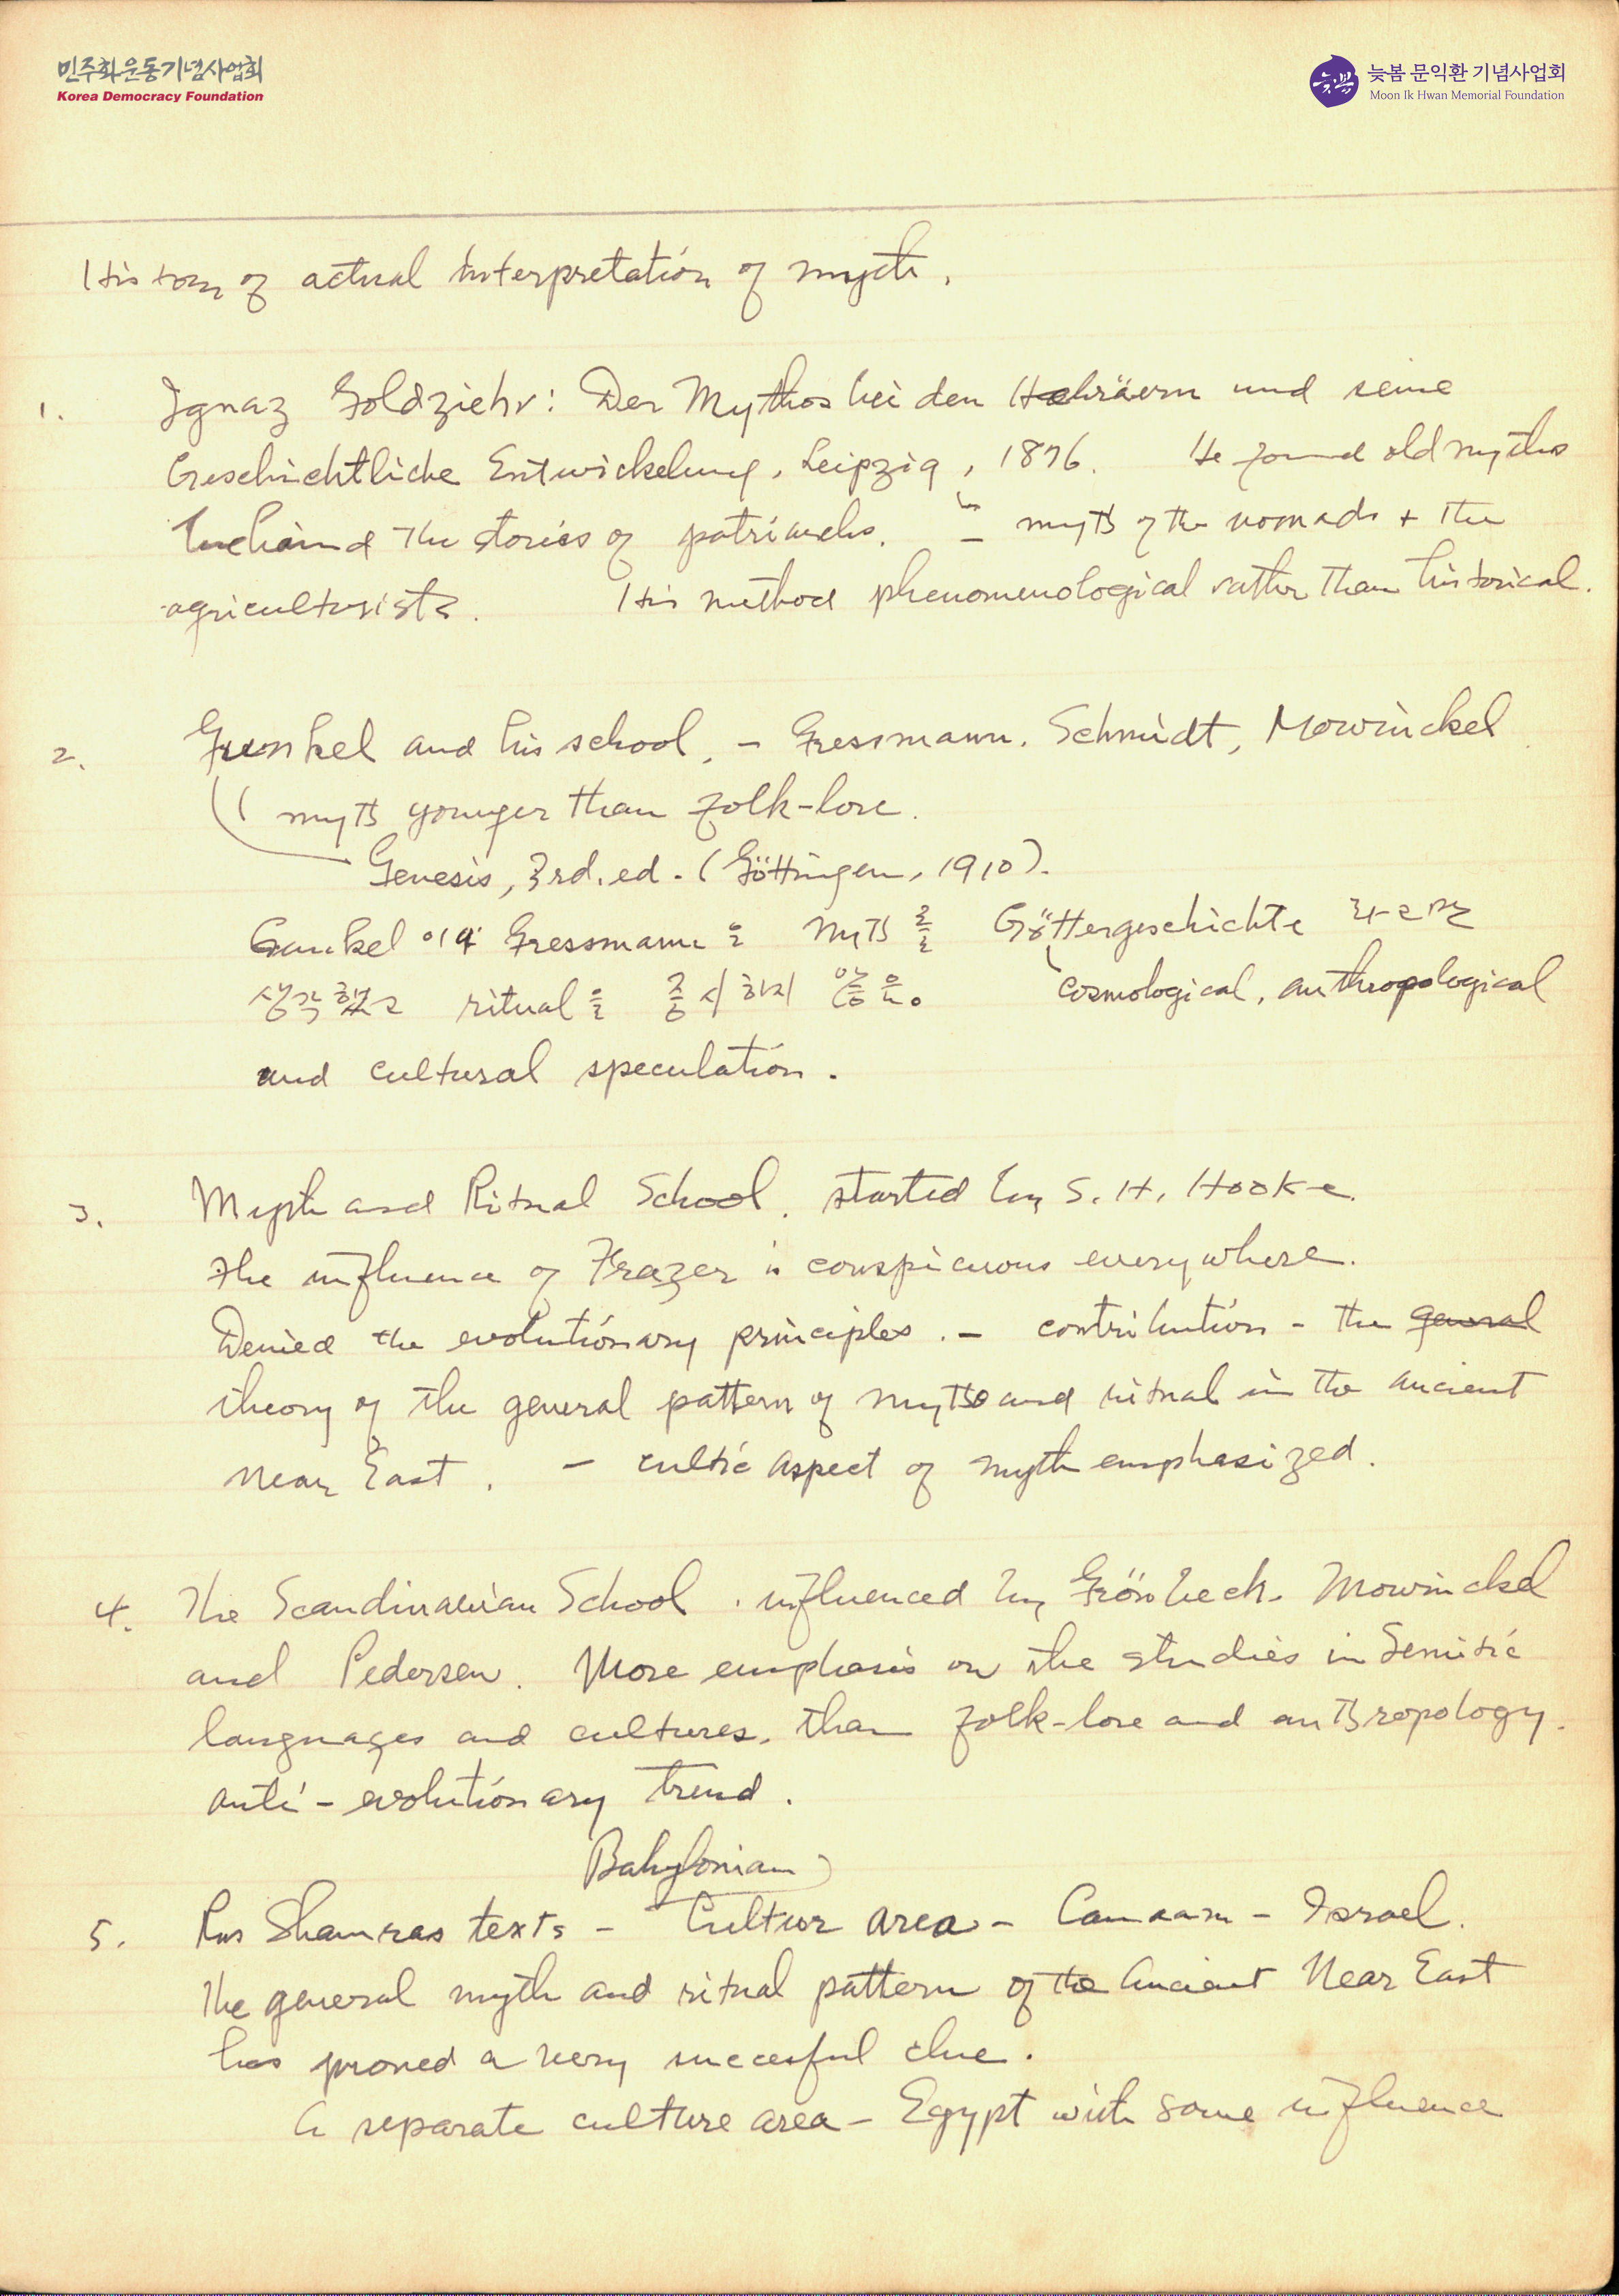 민주화운동기념사업회
Korea Democracy Foundation
늦봄
늦봄 문익환 기념사업회
Moon Ik Hwan Memorial Foundation
History of actual interpretation of myth.
1. Ignaz Goldziehr: Der Mythos bei den Hebräern und seine
Geschichtliche Entwickelung, Leipzig, 1876. He found old myths
behind the stories of patriarchs. – myth of the nomads + the
agriculturists. His method phenomenological rather than historical.
2. Gunkel and his school, – Gressmann, Schmidt, Mowinckel
( myth younger than folk-lore.
Genesis, 3rd. ed. (Göttingen, 1910).
Gunkel 이나 Gressmann은 myth를 Göttergeschichte 라고만
생각했고 ritual을 중시하지 않음。 cosmological, anthropological
and cultural speculation.
3. Myth and Ritual School. started by S. H. Hooke.
The influence of Frazer is conspicuous everywhere.
Denied the evolutionary principles. – contribution – the general
theory of the general pattern of myth and ritual in the ancient
Near East. – cultic aspect of myth emphasized.
4. The Scandinavian School. influenced by Grönbech. Mowinckel
and Pedersen. More emphasis on the studies in Semitic
languages and cultures, than folk-lore and anthropology.
anti-evolutionary trend.
Babylonian
5. Ras Shamras texts – Cultur area – Canaan – Israel.
The general myth and ritual pattern of the Ancient Near East
has proved a very succesful clue.
A separate culture area – Egypt with some influence